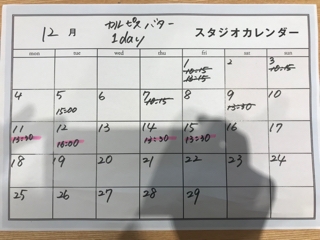 12月 カルピスバター 1day スタジオカレンダー
mon tue wed thu fri sat sun
1 2 3
10:15
16:15
10:15
4 5 6 7 8 9 10
15:00 10:15 13:30
11 12 13 14 15 16 17
13:30 16:00 13:30 13:30
18 19 20 21 22 23 24
25 26 27 28 29